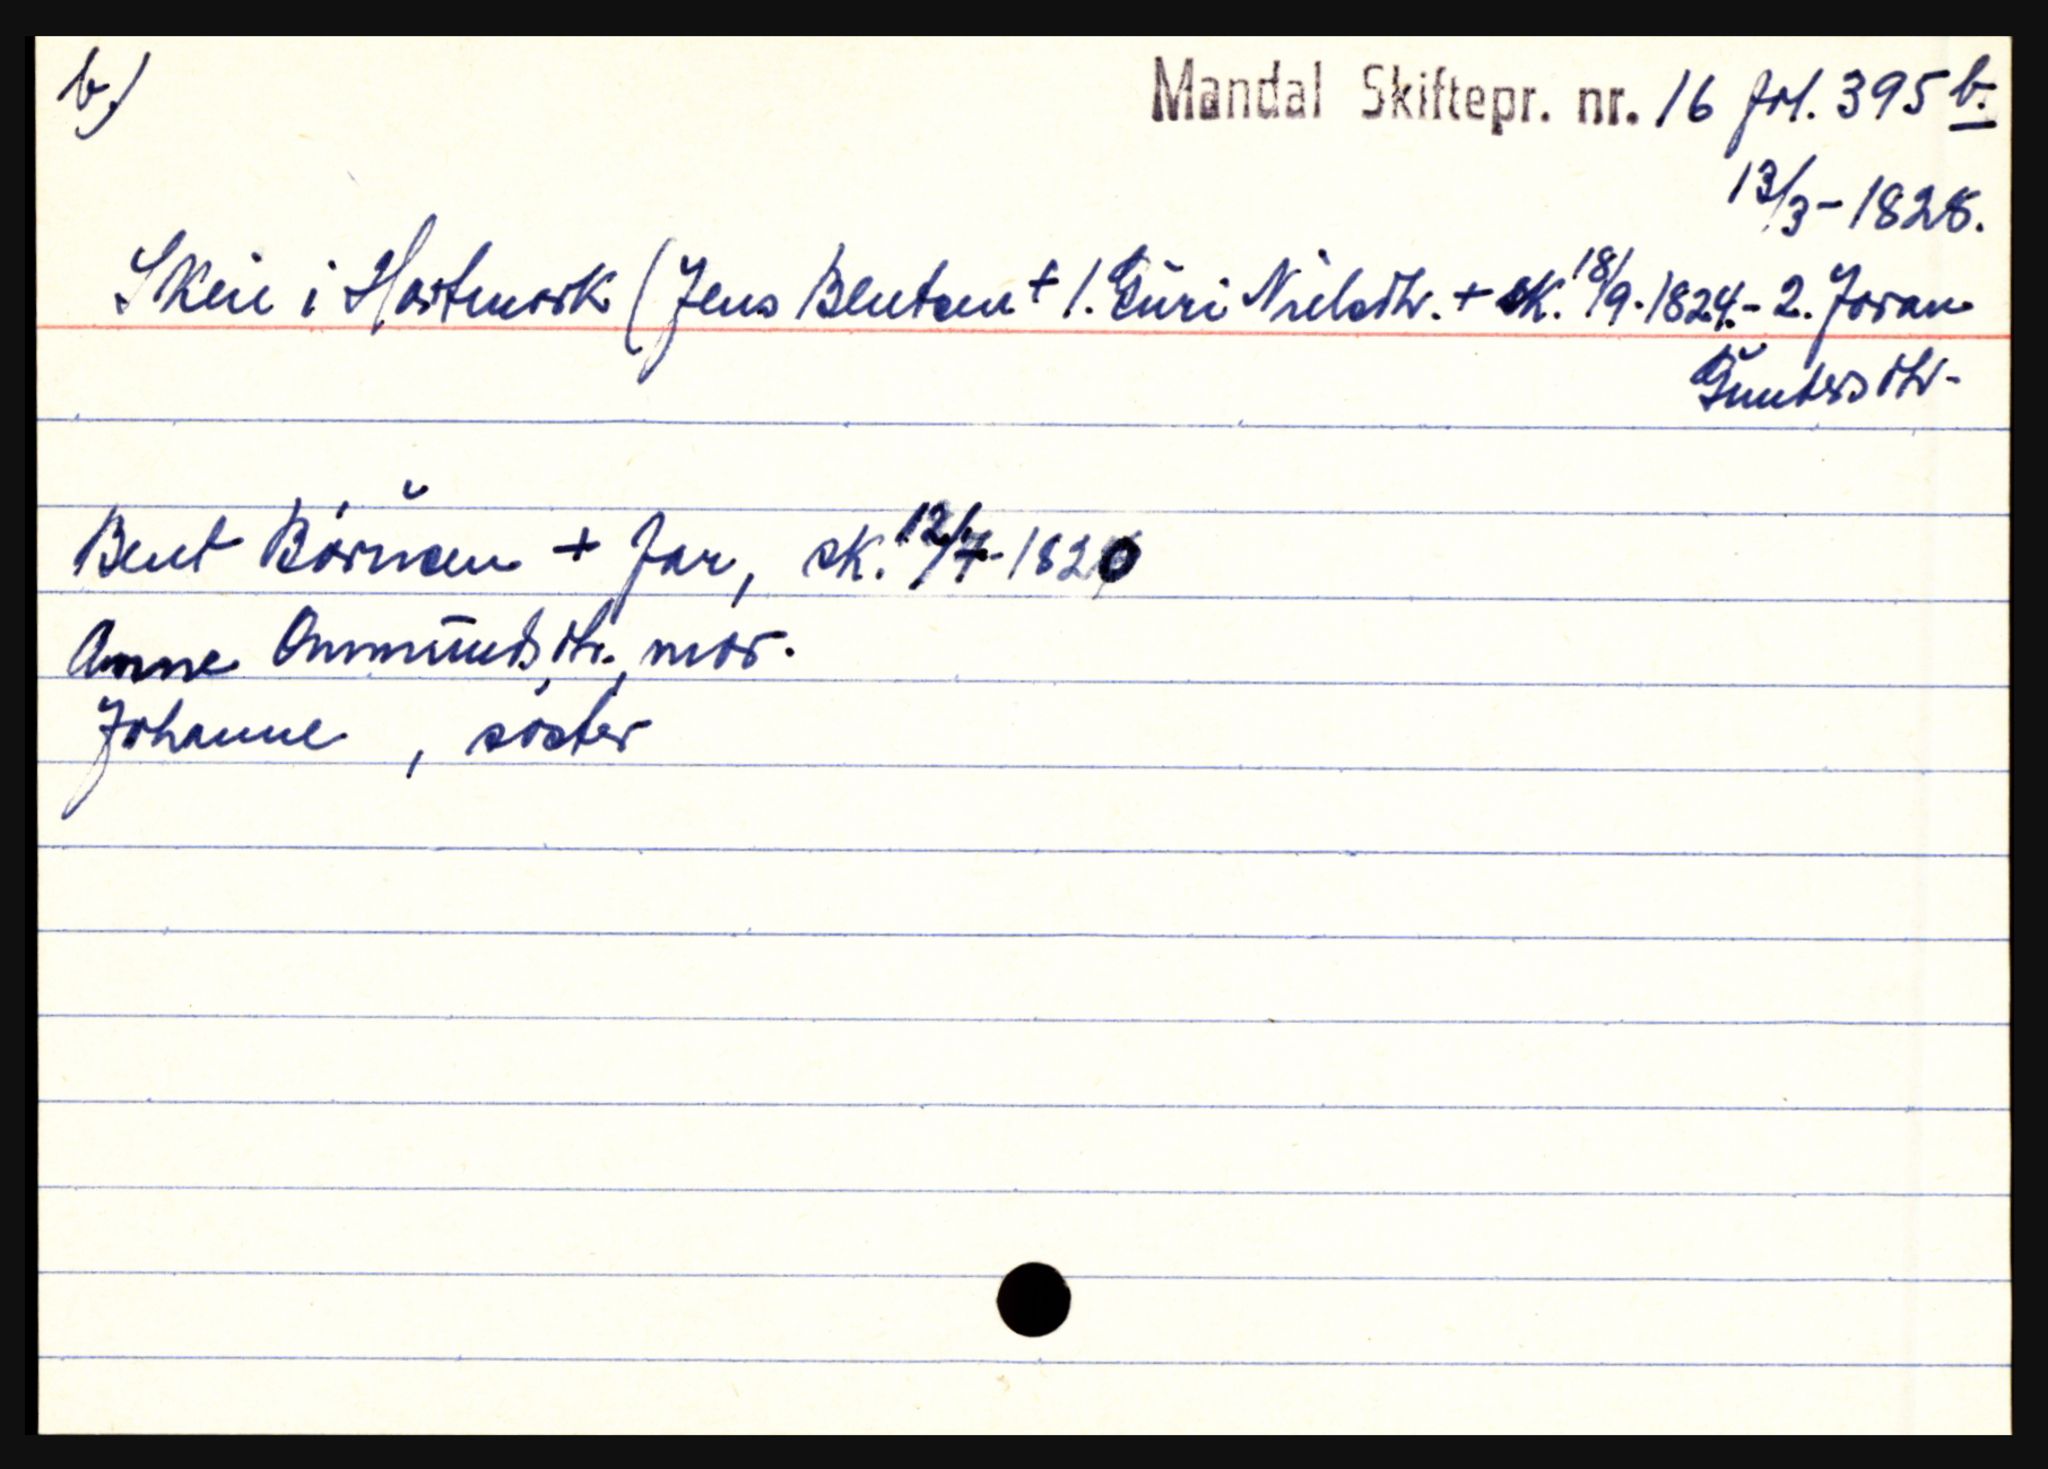 b)
Mandal Skiftepr. nr. 16 fol. 395 b.
13/3 - 1828.
Skeie i Hartmark (Jens Bentsen + 1. Guri Nielsdtr. + sk. 18/9. 1824. - 2. Joran
Guntersdtr -
Bent Börusen + far, sk. 12/7 - 1820
Anne Ommundsdtr., mor.
Johanne , söster